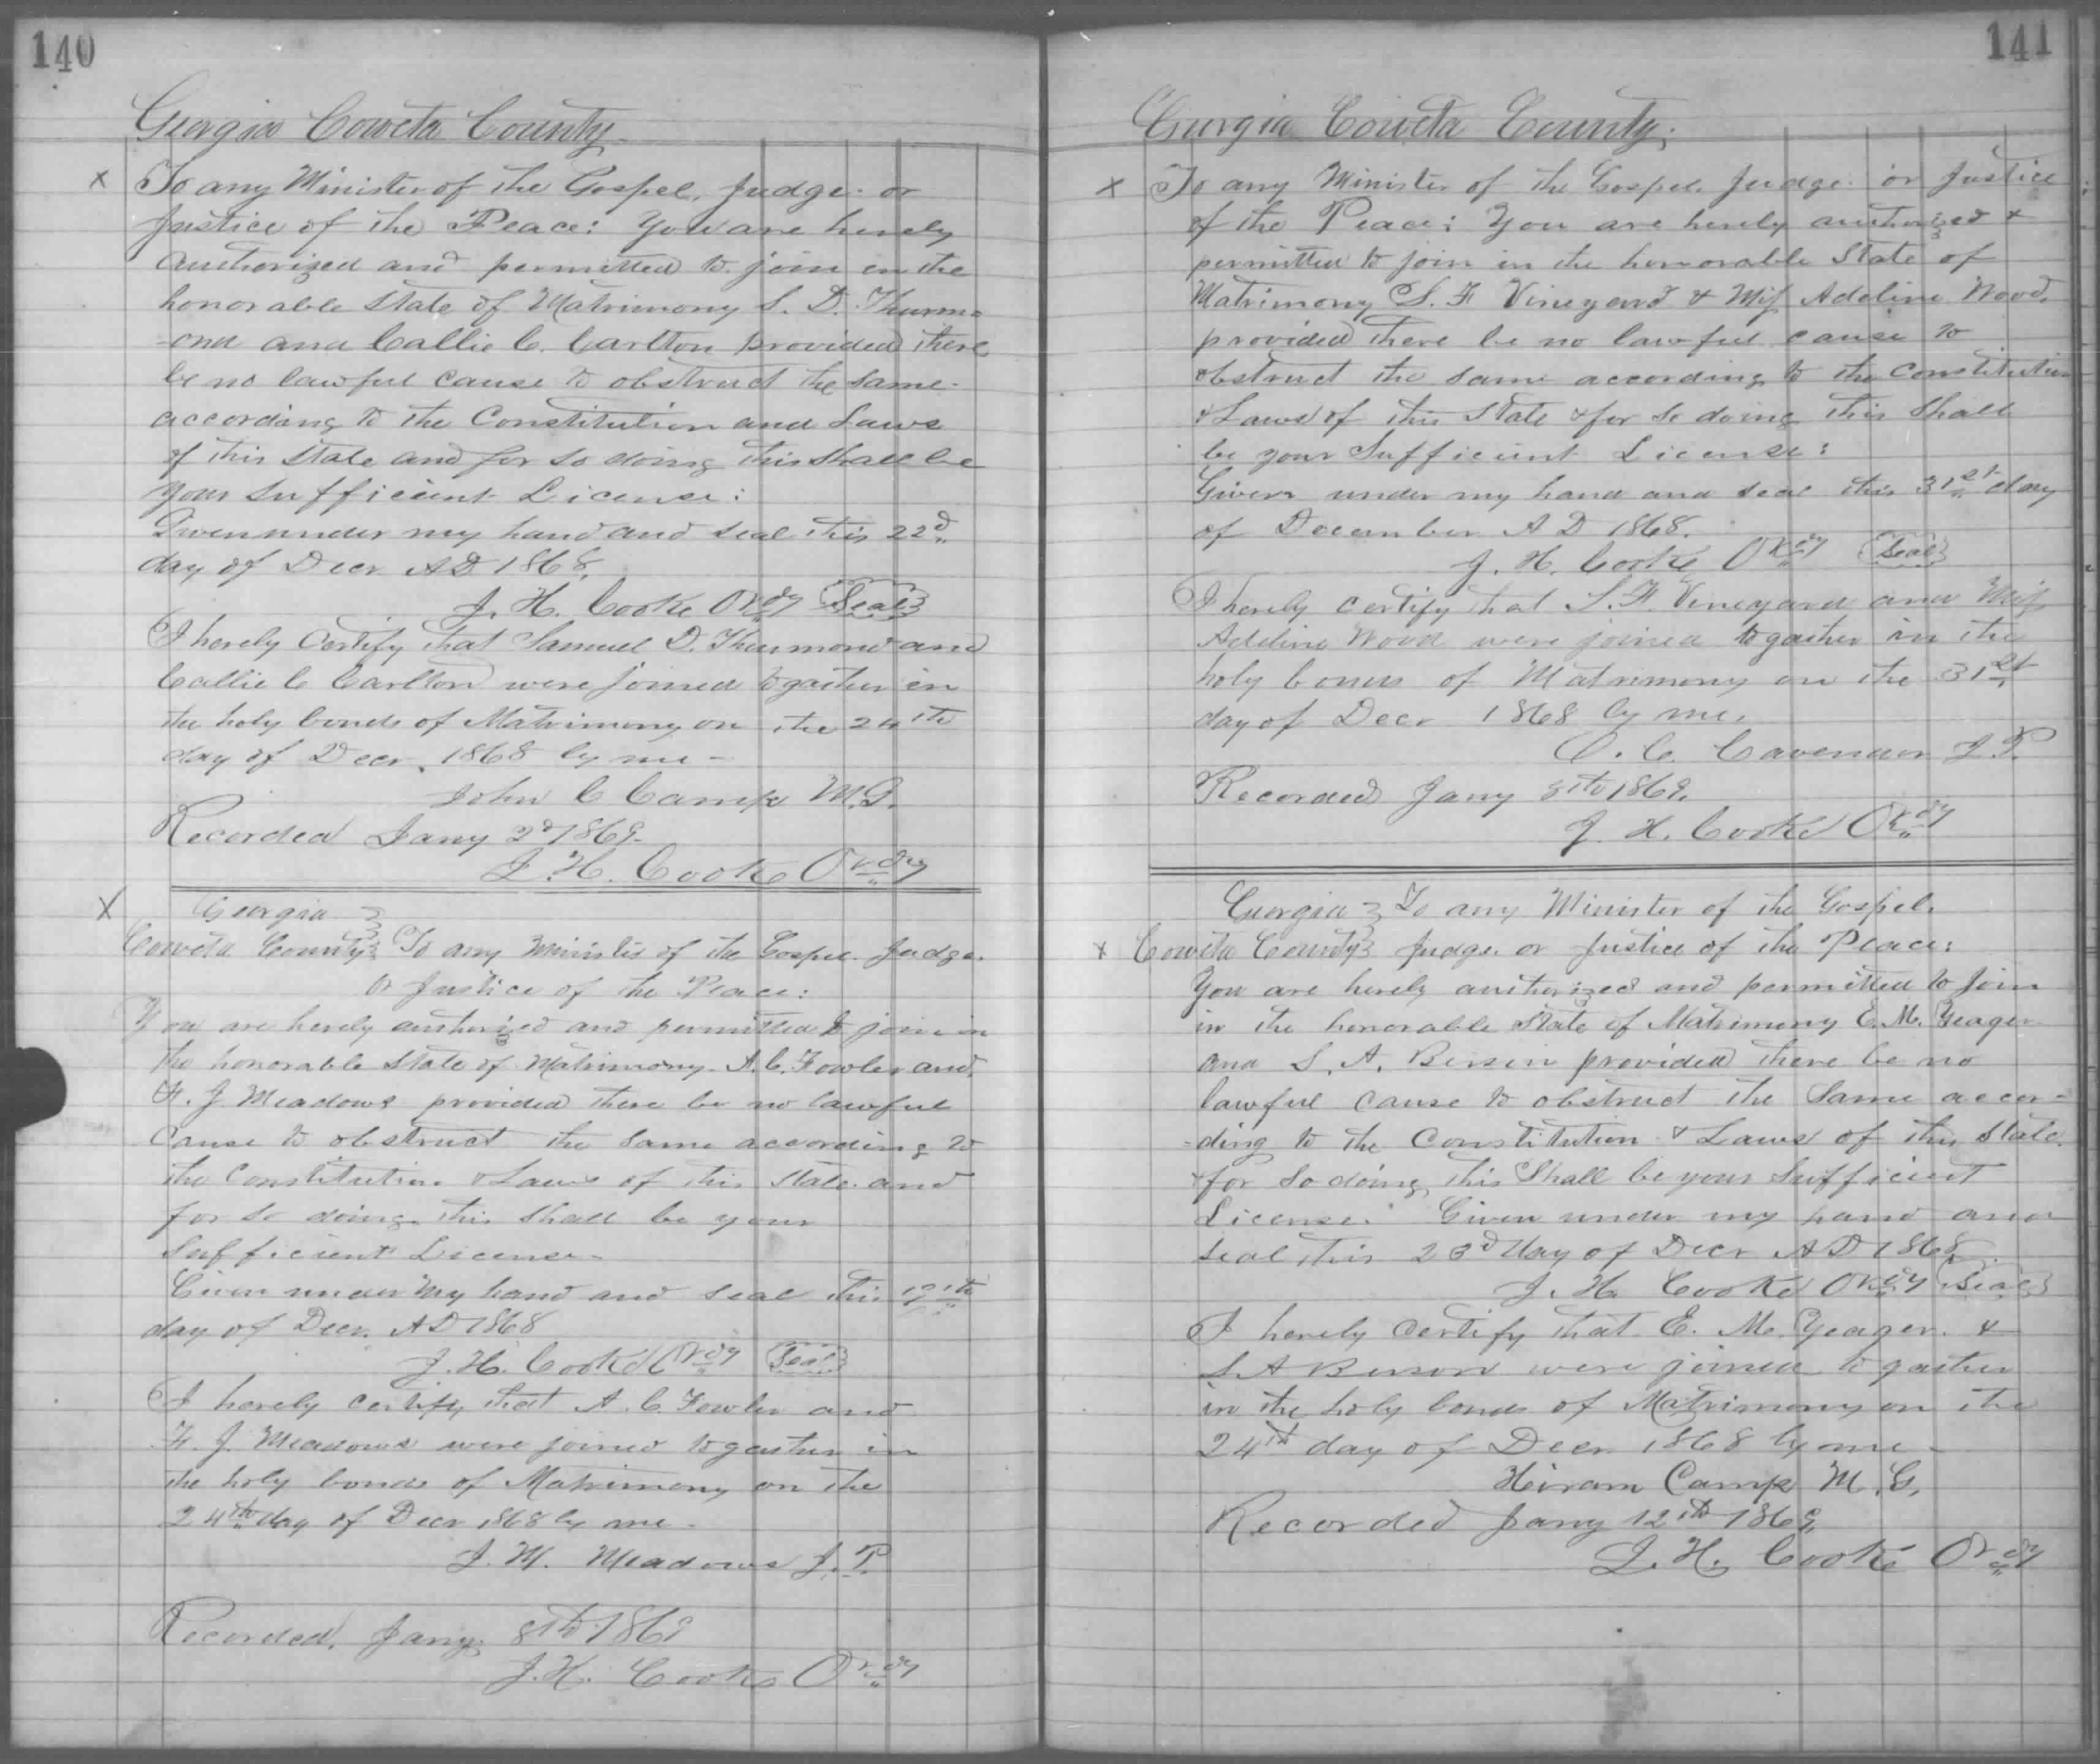 140
Georgia Coweta County
x To any Minister of the Gospel, Judge or
Justice of the Peace: You are hereby
authorized and permitted to join in the
honorable State of Matrimony S. D. Thurm=
=ond and Callie C. Carlton provided there
be no lawful cause to obstruct the same
according to the Constitution and Laws
of this State and for so doing this shall be
your Sufficient License:
Given under my hand and seal this 22d
day of Decr AD 1868.
J. H. Cooke Ordy Seal
I hereby Certify that Samuel D. Thurmond and
Callie C Carlton were joined togather in
the holy bonds of Matrimony on the 24th
day of Decr. 1868 by me -
John C Camp M.G.
Recorded Jany 2d 1869.
J. H. Cooke Ordy
X Georgia
Coweta County To any Minister of the Gospel Judge
or Justice of the Peace:
You are hereby authorized and permitted to join in
the honorable State of Matrimony A. C. Fowler and
F. J Meadows provided there be no lawful
Cause to obstruct the same according to
the Constitution & Laws of this State and
for so doing this shall be your
Sufficient License
Given under my hand and seal this
day of Decr. AD 1868
J. H. Cooke Ordy Seal
I hereby certify that A. C. Fowler and
F. J. Meadows were joined togather in
the holy bonds of Matrimony on the
24th day of Decr 1868 by me -
J. M. Meadows J. P.
Recorded, Jany 8th 1869
J. H. Cooke Ordy
141
Georgia Coweta County.
x To any Minister of the Gospel Judge or Justice
of the Peace: You are hereby authorized &
permitted to join in the honorable State of
Matrimony S. F Vineyard & Miss Adeline Wood,
provided there be no lawful cause to
obstruct the same according to the Constitution
& Laws of this State & for so doing this shall
be your Sufficient License:
Given under my hand and seal this 31st day
of December A D 1868.
J. H. Cooke Ordy Seal
I hereby certify that S. F. Vineyard and Miss
Adeline Wood were joined togather in the
holy bonds of Matrimony on the 31st
day of Decr 1868 by me.
C. Cavender J. P.
Recorded Jany 8th 1869.
J. H. Cooke Ordy
Georgia To any Minister of the Gospel.
x Coweta County Judge or Justice of the Peace:
You are hereby authorized and permitted to join
in the honorable State of Matrimony E. M. Yeager
and S. A. provided there be no
lawful cause to obstruct the Same accor-
-ding to the Constitution & Laws of this State
& for so doing this Shall be your Sufficient
License. Given under my hand and
seal this 23d day of Decr AD 1868.
J. H. Cooke Ordy Seal
I hereby certify that E. M. Yeager &
S. A were joined togather
in the holy bonds of Matrimony on the
24th day of Decr 1868 by me -
Hiram Camp M. G.
Recorded Jany 12th 1869.
J. H. Cooke Ordy